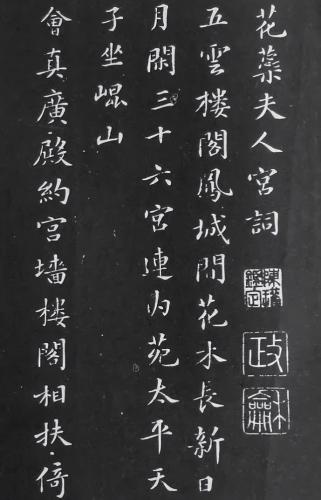 花蘂夫人宮詞
政
龢
五雲楼閣鳳城間花木長新日
月閑三十六宮連内苑太平天
子坐崐山
會真廣殿約宮墻楼閣相扶倚